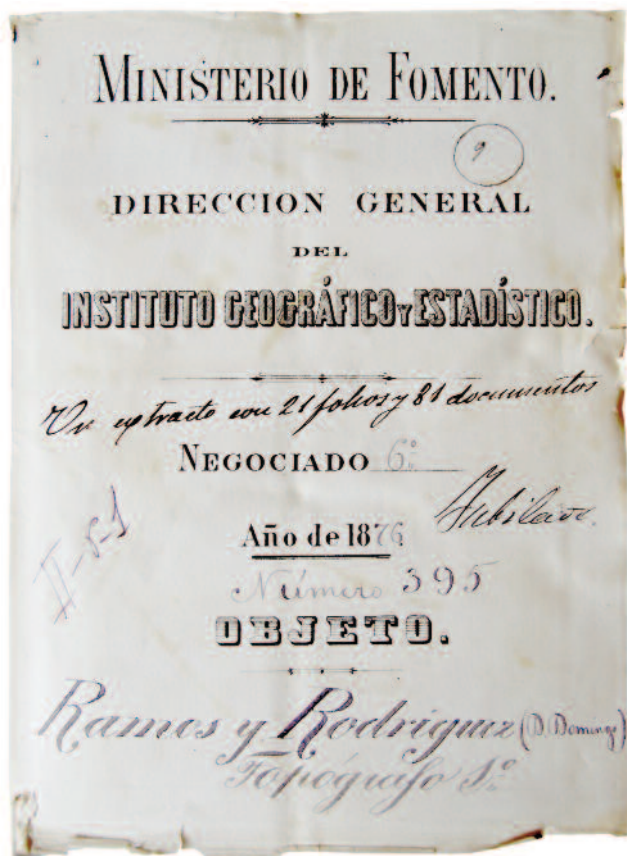 MINISTERIO DE FOMENTO.
9
DIRECCION GENERAL
DEL
INSTITUTO GEOGRÁFICO Y ESTADÍSTICO.
Un extracto con 21 folios y 81 documentos
NEGOCIADO 6º
Jubilado.
Año de 1876
II-5-1
Número 395
OBJETO.
Ramos y Rodriguez (D. Domingo)
Topógrafo 1º